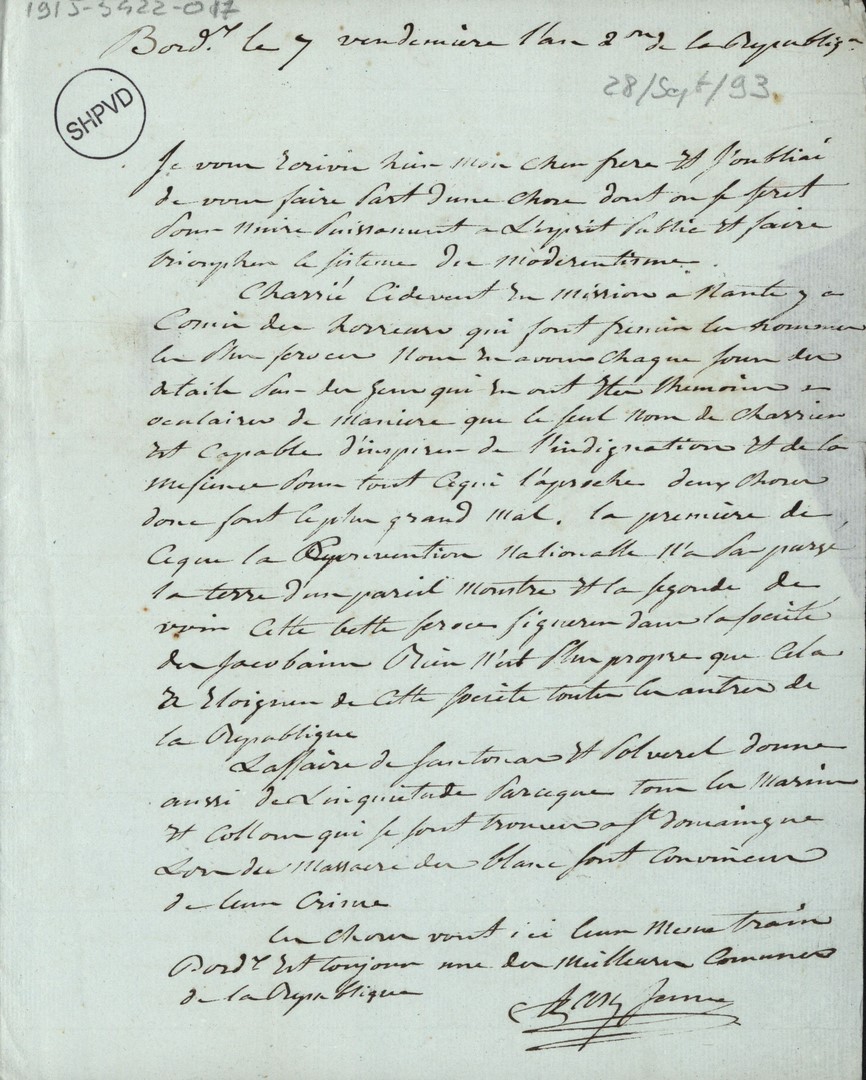 1915-5422-017
Bord.x le 7 vendemiere l'an 2me de la Republiq.
28/Sept/93
SHPVD
Je vous Ecrivis hier mon cher frere Et J'oubliai
de vous faire Part d'une chose dont on se sert
Pour Nuire Puissament a L'esprit Public Et faire
triompher le sisteme du moderentisme.
Charrié Cidevant En mission a Nante y a
Comis des horreurs qui font fremir les hommes
les Plus feroces Nous En avons chaque jour des
details Par des gens qui En ont Eté themoins
oculaires de maniere que le seul nom de Charrier
Est Capable d'inspirer de l'indignation Et de la
mefience Pour tout Cequi l'aproche deux choses
donc font le plus grand mal. la premiere de
Ceque la Convention Nationalle N'a Pas purgé
la terre d'un pareil Monstre Et la segonde de
voir Cette bette feroce figurer dans la societé
des Jacobains Rien N'est Plus propre que Cela
a Eloigner de Cette societé toutes les autres de
la Republique
Laffaire de Santonax Et Polverel donne
aussi de Linquietude Parceque tous les Marins
Et Collons qui se sont trouves a St domaingue
Lors des Massacre des blanc sont Convincus
de leurs Crime
les choses vont ici leur Meme train
Bord.x Est toujour une des Meilleures Comunes
de la Republique
Jeune